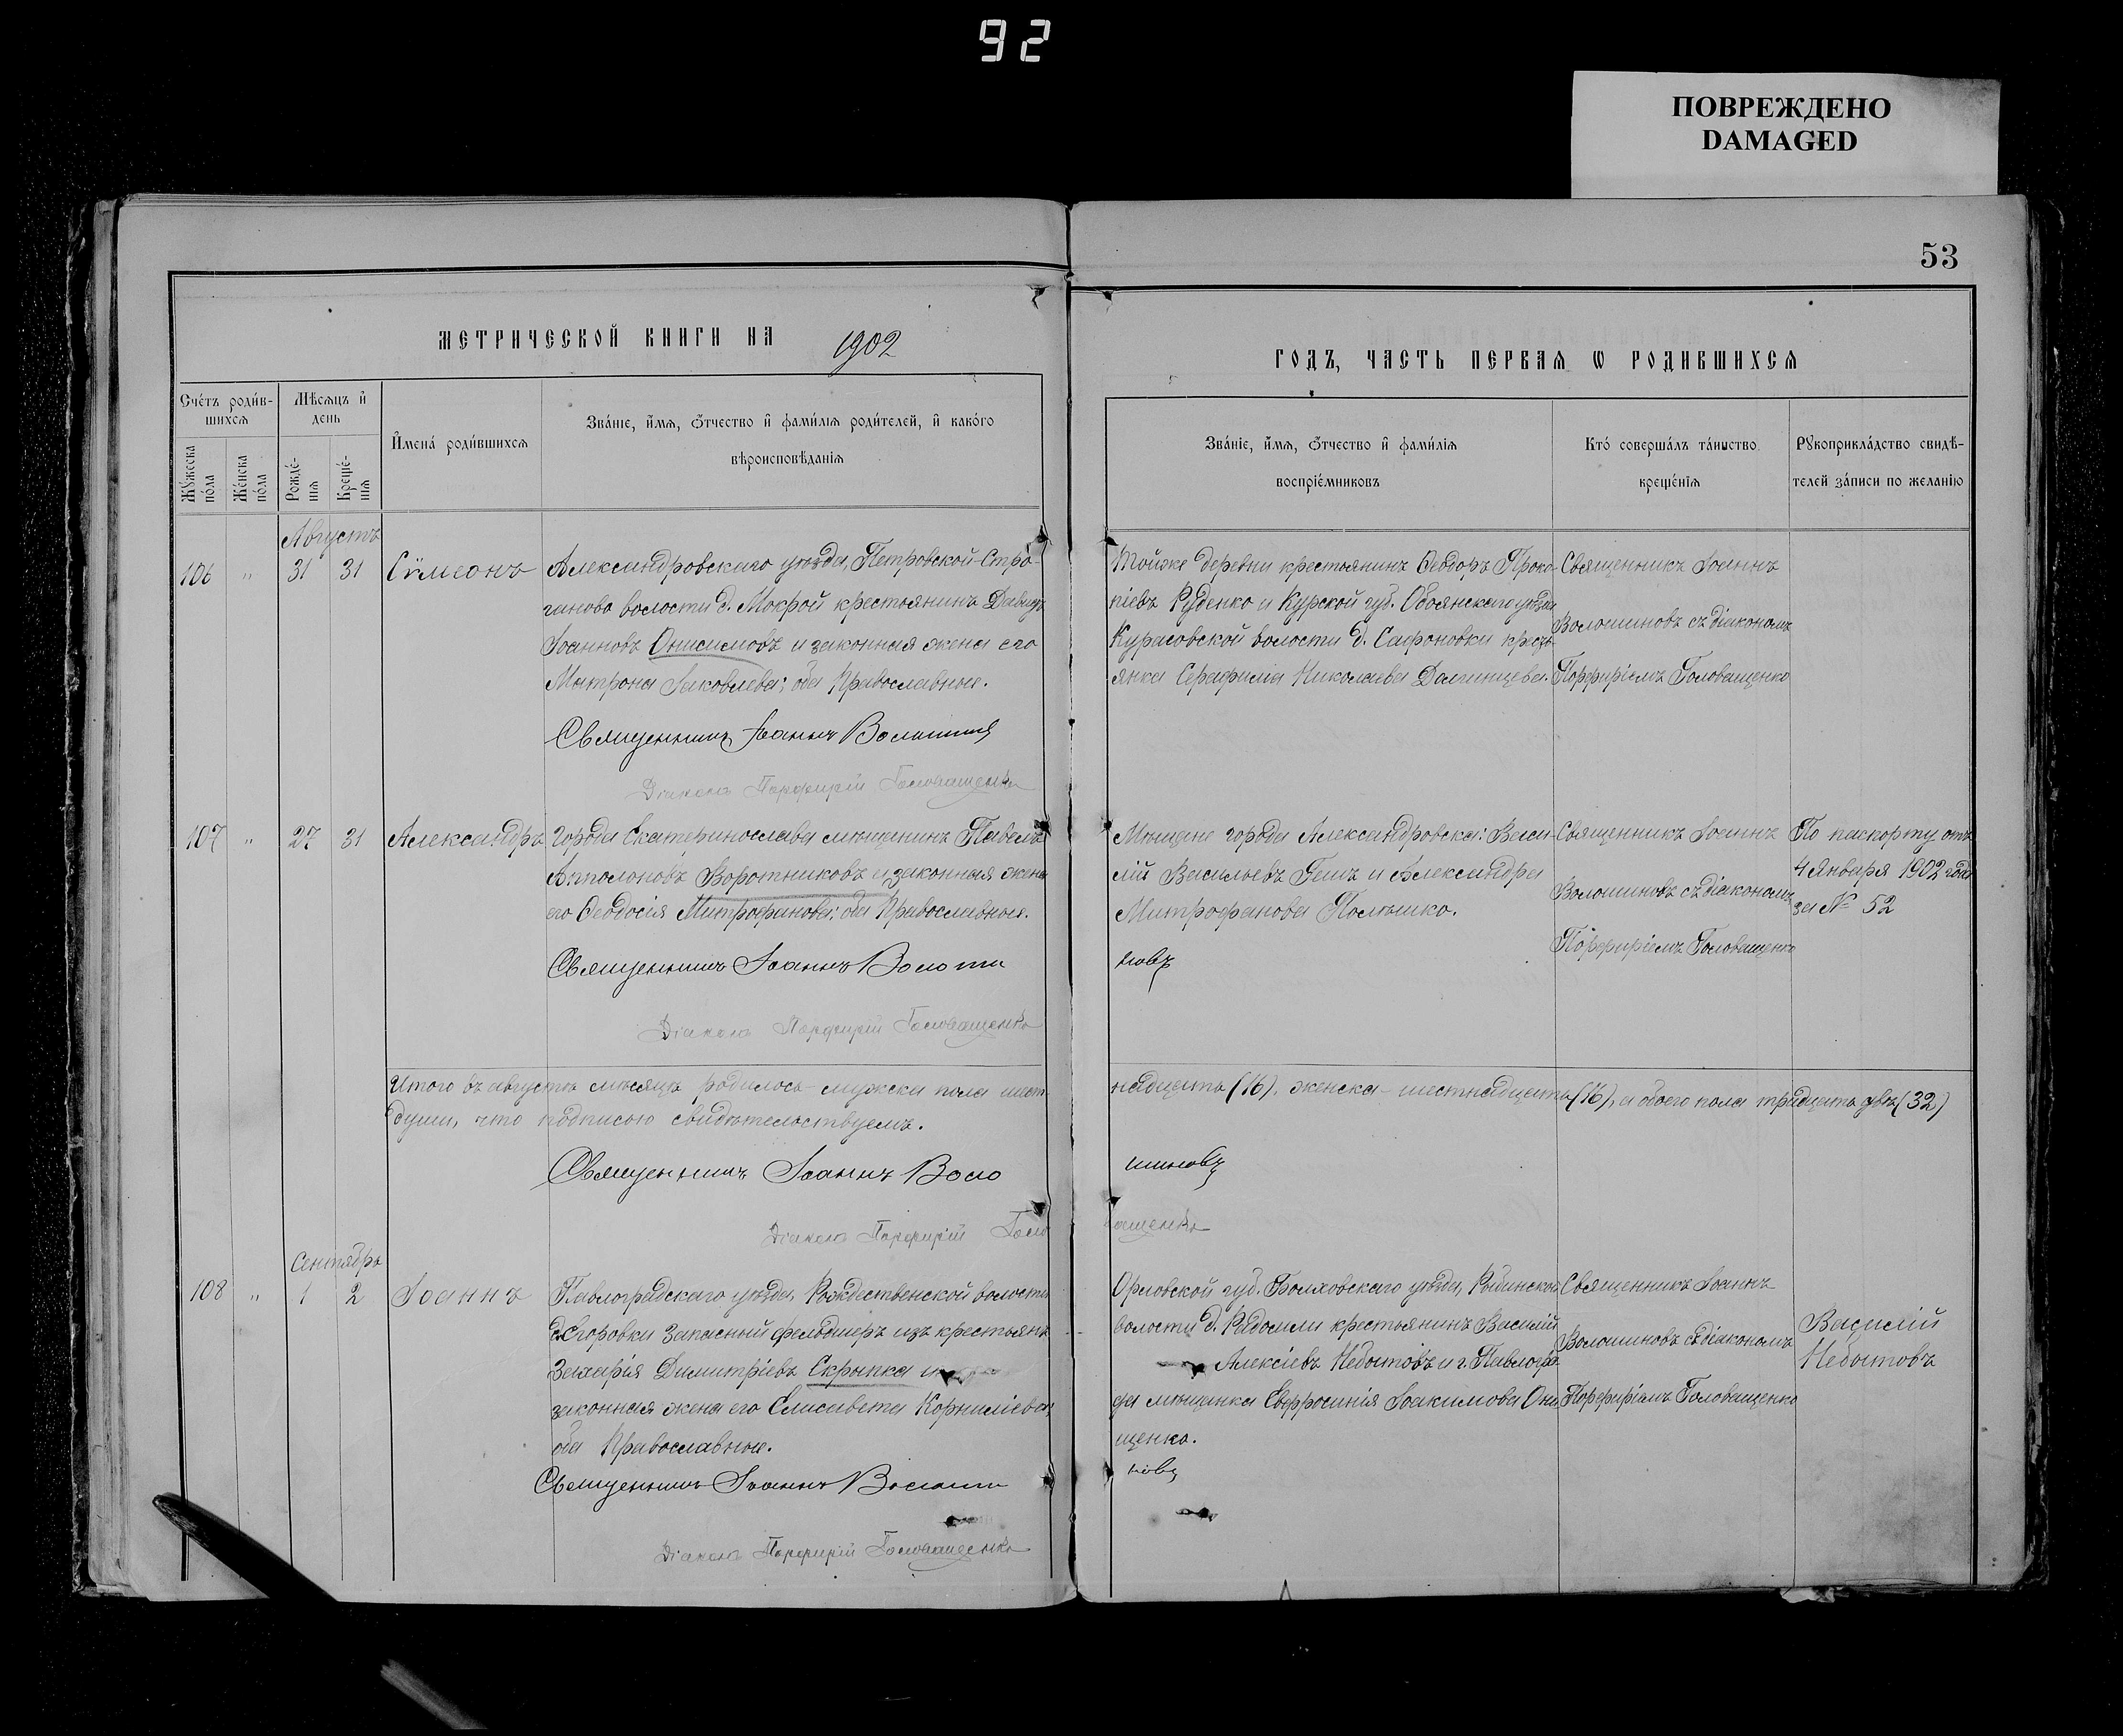 92
ПОВРЕЖДЕНО
DAMAGED
53
МЕТРИЧЕСКОЙ КНИГИ НА 1902
ГОДЪ, ЧАСТЬ ПЕРВАЯ Ѡ РОДИВШИХСЯ
Счетъ родив-
шихся
Мѣсяцъ и
день
Мужеска
пола
Женска
пола
Рожде-
нія
Креще-
нія
Имена родившихся
Званіе, имя, отчество и фамилія родителей, и какого
вѣроисповѣданія
Званіе, имя, отчество и фамилія
воспріемниковъ
Кто совершалъ таинство
крещенія
Рукоприкладство свидѣ-
телей записи по желанію
Августъ
106 " 31 31 Сѵмеонъ
Александровскаго уѣзда, Петровской-Стро-
ганово волости д. Мокрой крестьянинъ Давидъ
Іоанновъ Онисимовъ и законная жена его
Матрона Іаковлева; оба Православные.
Священникъ Іоаннъ Волошинов
Діаконъ Порфирій Головащенко
Тойже деревни крестьянинъ Ѳеодоръ Проко-
піевъ Руденко и Курской губ. Обоянскаго уѣзда
Курасовской волости д. Сафоновки кресть-
янка Серафима Николаева Долгинцева.
Священникъ Іоаннъ
Волошиновъ съ діакономъ
Порфиріемъ Головащенко
107 " 27 31 Александръ
города Екатеринослава мѣщанинъ Павелъ
Апполоновъ Воротниковъ и законная жена
его Ѳеодосія Митрофанова; оба Православные.
Священникъ Іоаннъ Волоши
Діаконъ Порфирій Головащенко
Мѣщане города Александровска: Васи-
лій Васильевъ Гешъ и Александра
Митрофанова Полюшко.
новъ
Священникъ Іоаннъ
Волошиновъ съ діакономъ
Порфиріемъ Головащенко
По паспорту отъ
4 Января 1902 года
за № 52
Итого въ августѣ мѣсяцѣ родилось мужска пола шест-
надцать (16), женска - шестнадцать (16), а обоего пола тридцать двѣ (32)
души, что подписью свидѣтельствуемъ.
Священникъ Іоаннъ Воло
шиновъ
Діаконъ Порфирій Голо
ващенко
Сентябрь
108 " 1 2 Іоаннъ
Павлоградскаго уѣзда, Рождественской волости
д. Егоровки запасный фельдшеръ изъ крестьянъ
Захарія Димитріевъ Скрыпка и
законная жена его Елисавета Корниліева;
оба Православные.
Священникъ Іоаннъ Волоши
Діаконъ Порфирій Головащенко
Орловской губ. Болховскаго уѣзда, Рыбинской
волости д. Радомли крестьянинъ Василій
Алексіевъ Небытовъ и г. Павлогра-
да мѣщанка Евфросинія Іоакимова Они-
щенко.
новъ
Священникъ Іоаннъ
Волошиновъ съ діакономъ
Порфиріемъ Головащенко
Василій
Небытовъ